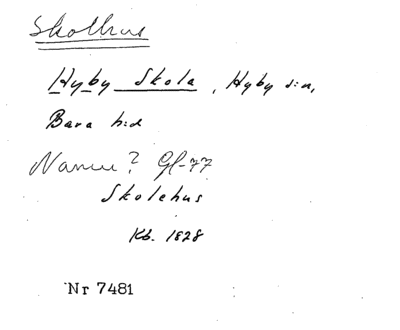 Skolhus
Hyby Skola, Hyby s:n,
Bara h:d
Namn? Gl-77
Skolehus
Kb. 1828
Nr 7481